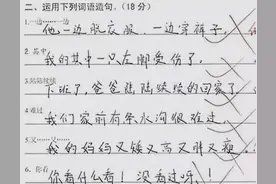 二、运用下列词语造句。(18分)
1.一边……一边
他一边脱衣服,一边穿裤子。
2.其中
我的其中一只左脚受伤了。
3.陆陆续续
下班了,爸爸陆陆续续的回家了。
4.难过
我们家前有条水沟很难过。
5.又……又……
我的妈妈又矮又高又胖又瘦。
6.你看
你看什么看!没看过呀!